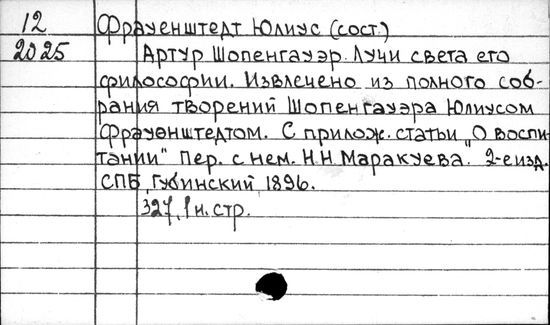 12 Фрауенштедт Юлиус (сост.)
2025 Артур Шопенгауэр. Лучи света его
философии. Извлечено из полного соб-
рания творений Шопенгауэра Юлиусом
Фрауэнштедтом. С прилож. статьи „О воспи-
тании" Пер. с нем. Н.Н Маракуева. 2-е изд.
СПБ, Губинский, 1896.
327, 1 н. стр.